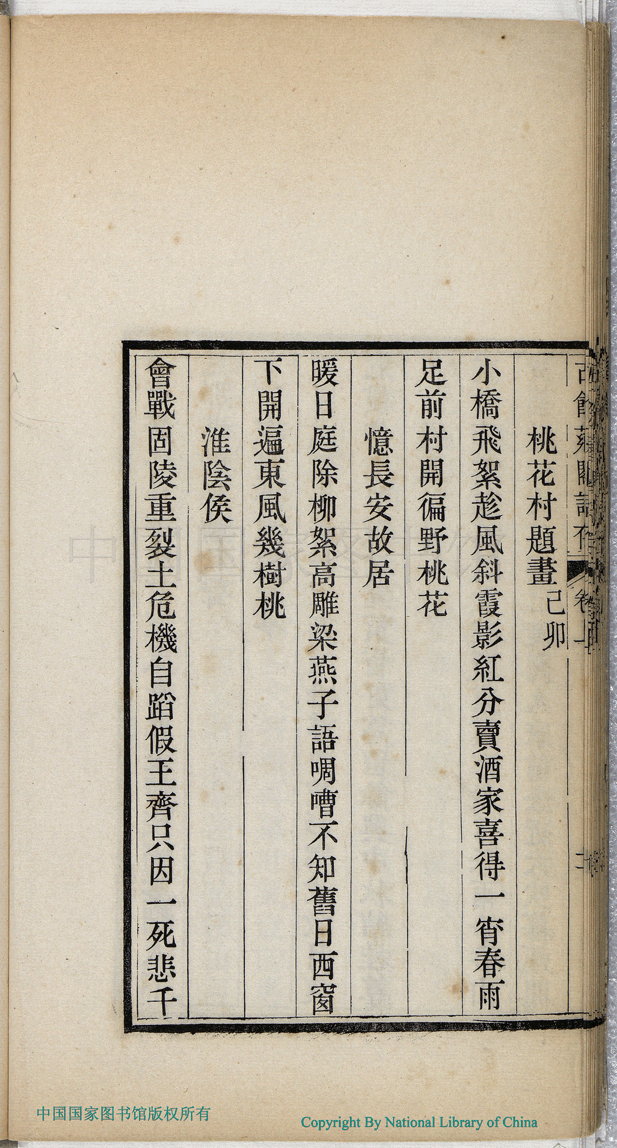 桃花村題畫己卯
小橋飛絮趁風斜霞影紅分賣酒家喜得一宵春雨
足前村開徧野桃花
憶長安故居
暖日庭除柳絮高雕梁燕子語啁嘈不知舊日西窗
下開遍東風幾樹桃
淮陰侯
會戰固陵重裂土危機自蹈假王齊只因一死悲千
中国国家图书馆版权所有
Copyright By National Library of China